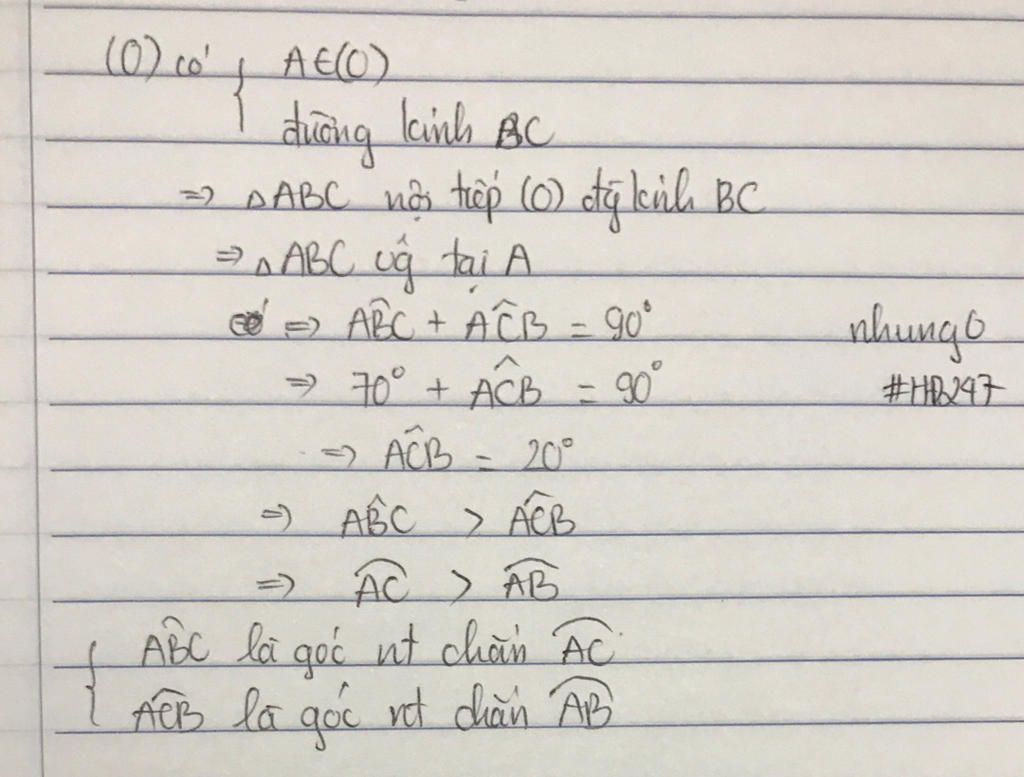 (O) có { A∈(O)
đường kính BC
=> △ABC nội tiếp (O) đg kính BC
=> △ABC vg tại A
=> ABC^ + ACB^ = 90°
=> 70° + ACB^ = 90°
=> ACB^ = 20°
=> ABC^ > ACB^
=> AC⌒ > AB⌒
{ ABC^ là góc nt chắn AC⌒
ACB^ là góc nt chắn AB⌒
nhung0
#HB247